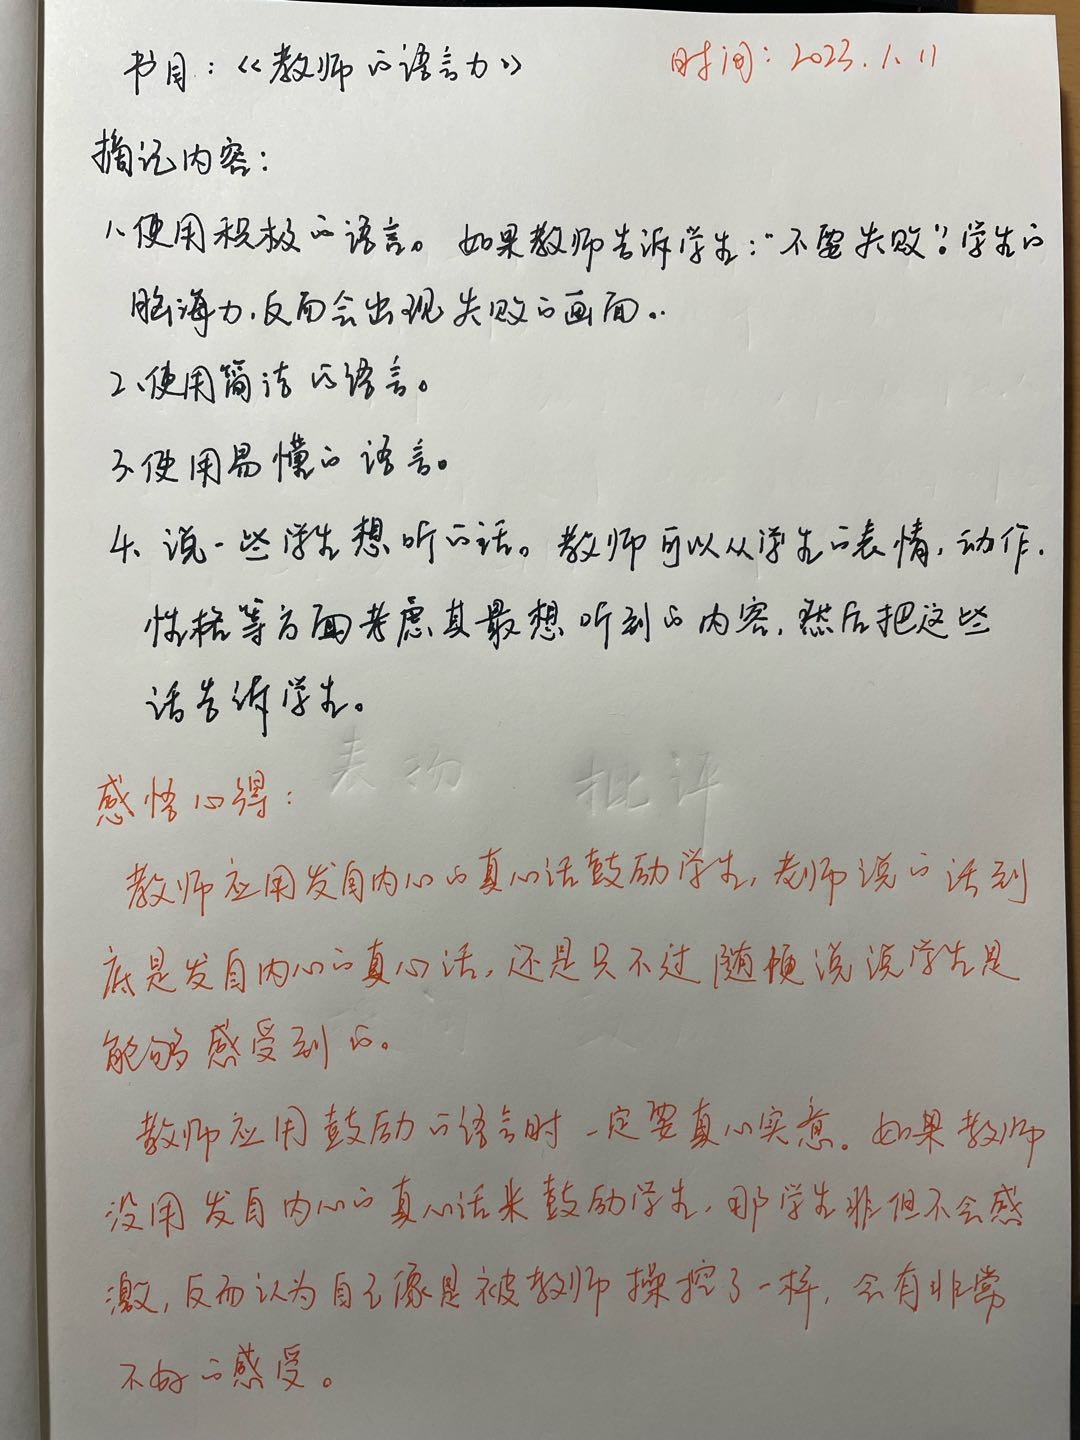 书目：《教师的语言力》
时间：2023.1.11
摘记内容：
1、使用积极的语言。如果教师告诉学生：“不要失败”。学生的
脑海力，反而会出现失败的画面。
2、使用简洁的语言。
3、使用易懂的语言。
4、说一些学生想听的话。教师可以从学生的表情，动作，
性格等方面考虑其最想听到的内容，然后把这些
话告诉学生。
表扬 批评
感悟心得：
教师应用发自内心的真心话鼓励学生，老师说的话到
底是发自内心的真心话，还是只不过随便说说学生是
能够感受到的。
教师应用鼓励的语言时一定要真心实意。如果教师
没用发自内心的真心话来鼓励学生，那学生非但不会感
激，反而认为自己像是被教师操控了一样，会有非常
不好的感受。